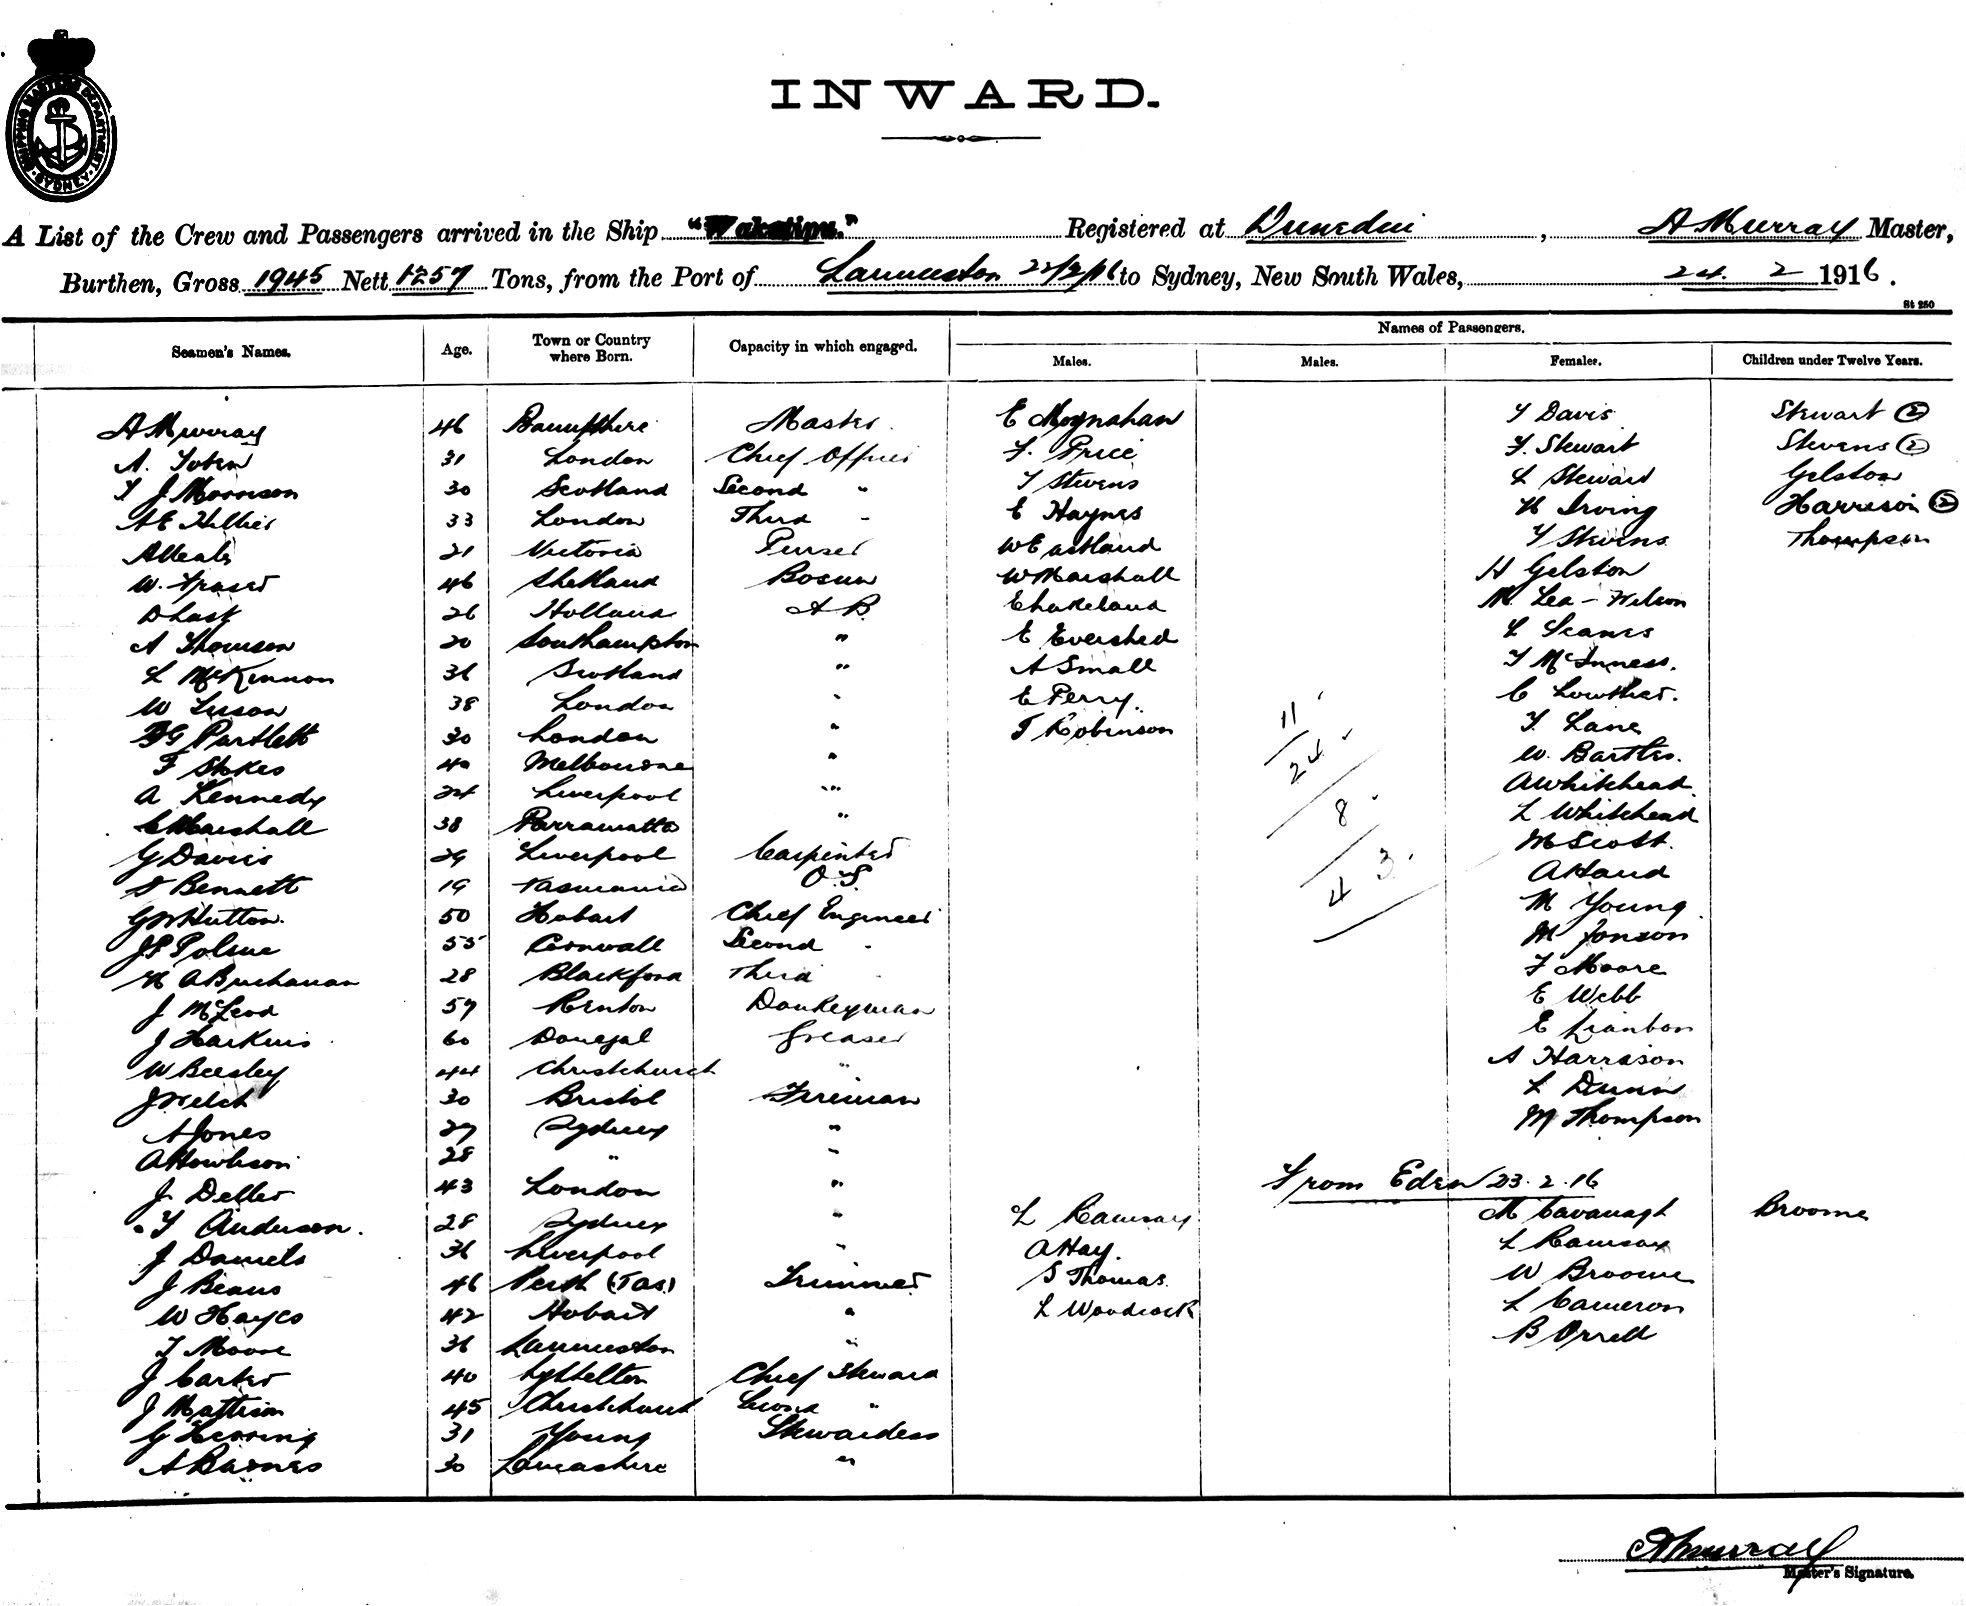 SHIPPING MASTER'S DEPARTMENT SYDNEY
INWARD.
A List of the Crew and Passengers arrived in the Ship "Wakatipu." Registered at Dunedin, A Murray Master,
Burthen, Gross 1945 Nett 1257 Tons, from the Port of Launceston 22/2/16 to Sydney, New South Wales, 24. 2 1916.
St 250
Names of Passengers.
Seamen's Names. Age. Town or Country where Born. Capacity in which engaged. Males. Males. Females. Children under Twelve Years.
A Murray 46 Banffshire Master E Moynahan Y Davis Stewart (2)
A. Tobin 31 London Chief Officer F. Price F. Stewart Stevens (2)
J Morrison 30 Scotland Second " Stevens L Steward Gelston
AE Hillier 33 London Third " E Haynes H Irving Harrison (2)
21 Victoria Purser W Eastland Y Stevens Thompson
W. Fraser 46 Shetland Bosun W Marshall H Gelston
D Last 26 Holland A B. E Lakeland M. Lea - Wilson
A Thomson 20 Southampton " E Evershed L Seanes
L McKinnon 36 Scotland " A Small McInness.
W 38 London " E Perry. C Lowther.
FG Partlett 30 London " T Robinson Lane
F Stokes 40 Melbourne " W. Bartles.
A Kennedy 24 Liverpool " A Whitehead
C Marshall 38 Parramatta " L Whitehead
G Davies 29 Liverpool Carpenter M Scott.
Bennett 19 Tasmania O.S. A Hand
GW Hutton. 50 Hobart Chief Engineer M Young
JP Polsue 55 Cornwall Second " M Jonson
H A Buchanan 28 Blackford Third " F Moore
J McLeod 57 Renton Donkeyman E Webb
J Harkins 60 Donegal Greaser E
W Beesley 44 Christchurch " A Harrison
J Welch 30 Bristol Fireman L Dunn
A Jones 29 Sydney " M Thompson
A Howieson 28 " "
J Deller 43 London "
Anderson. 28 Sydney "
J Daniels 36 Liverpool "
J Beans 46 Perth (Tas) Trimmer
W Hayes 42 Hobart "
T Moore 36 Launceston "
J Carter 40 Lyttelton Chief Steward
J Mattison 45 Christchurch Second "
G Herring 31 Young Stewardess
A Barnes 30 Lancashire "
11
24
8
3
4
From Eden 23.2.16
L Ramsay M Cavanagh Broome
A Hay. L Ramsay
S Thomas. W Broome
L Woodcock L Cameron
B Orrell
A Murray
Master's Signature.